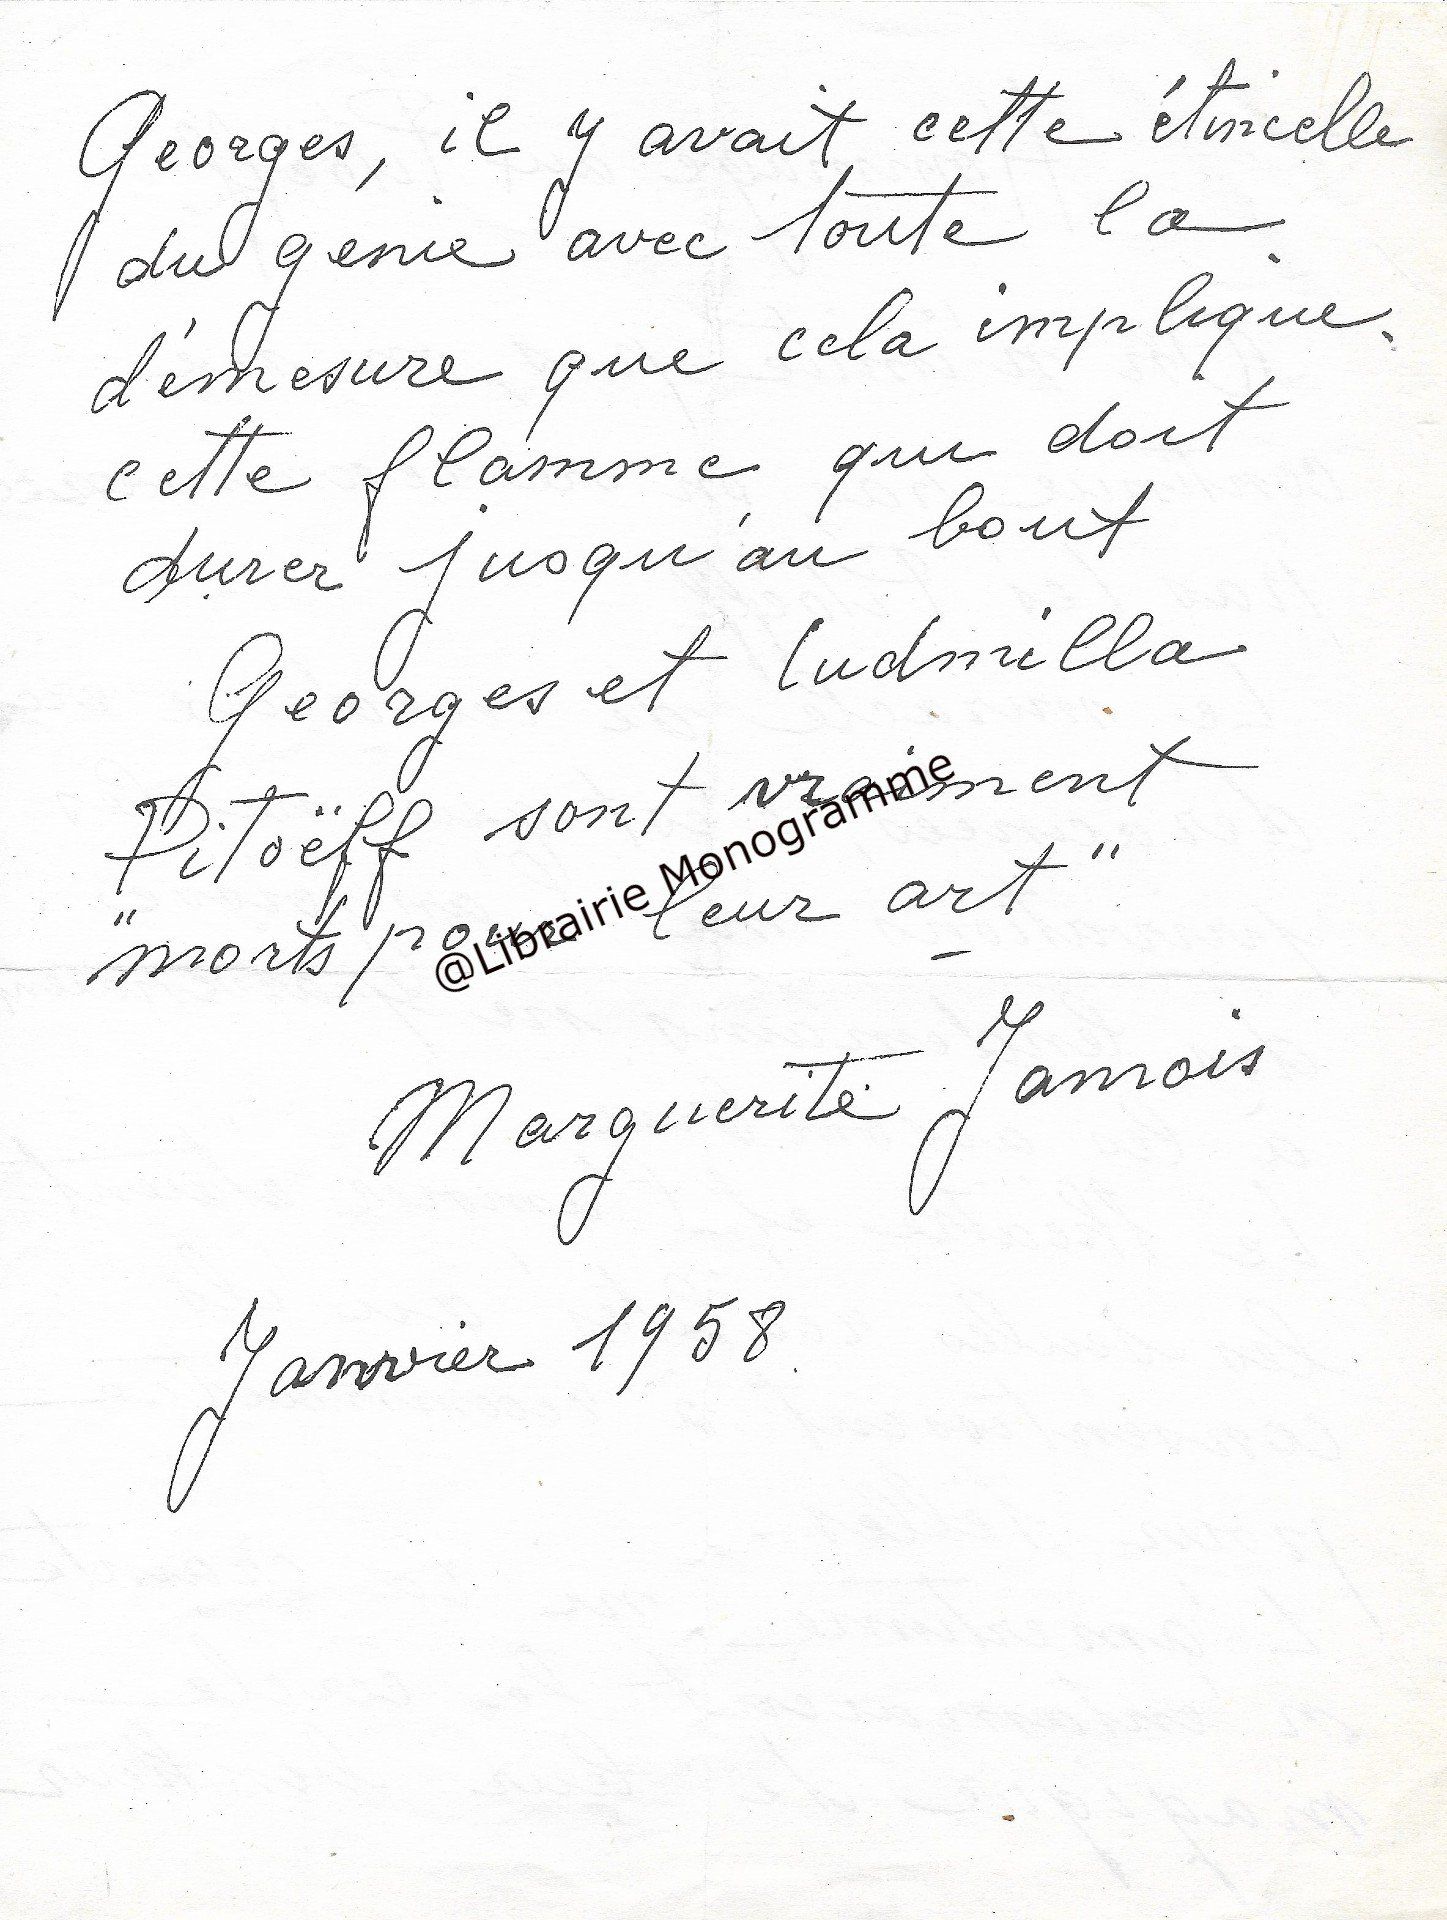 Georges, il y avait cette étincelle
du génie avec toute la
démesure que cela implique.
cette flamme qui doit
durer jusqu'au bout
Georges et Ludmilla
Pitoëff sont vraiment
"morts pour leur art"
@Librairie Monogramme
Marguerite Jamois
Janvier 1958.